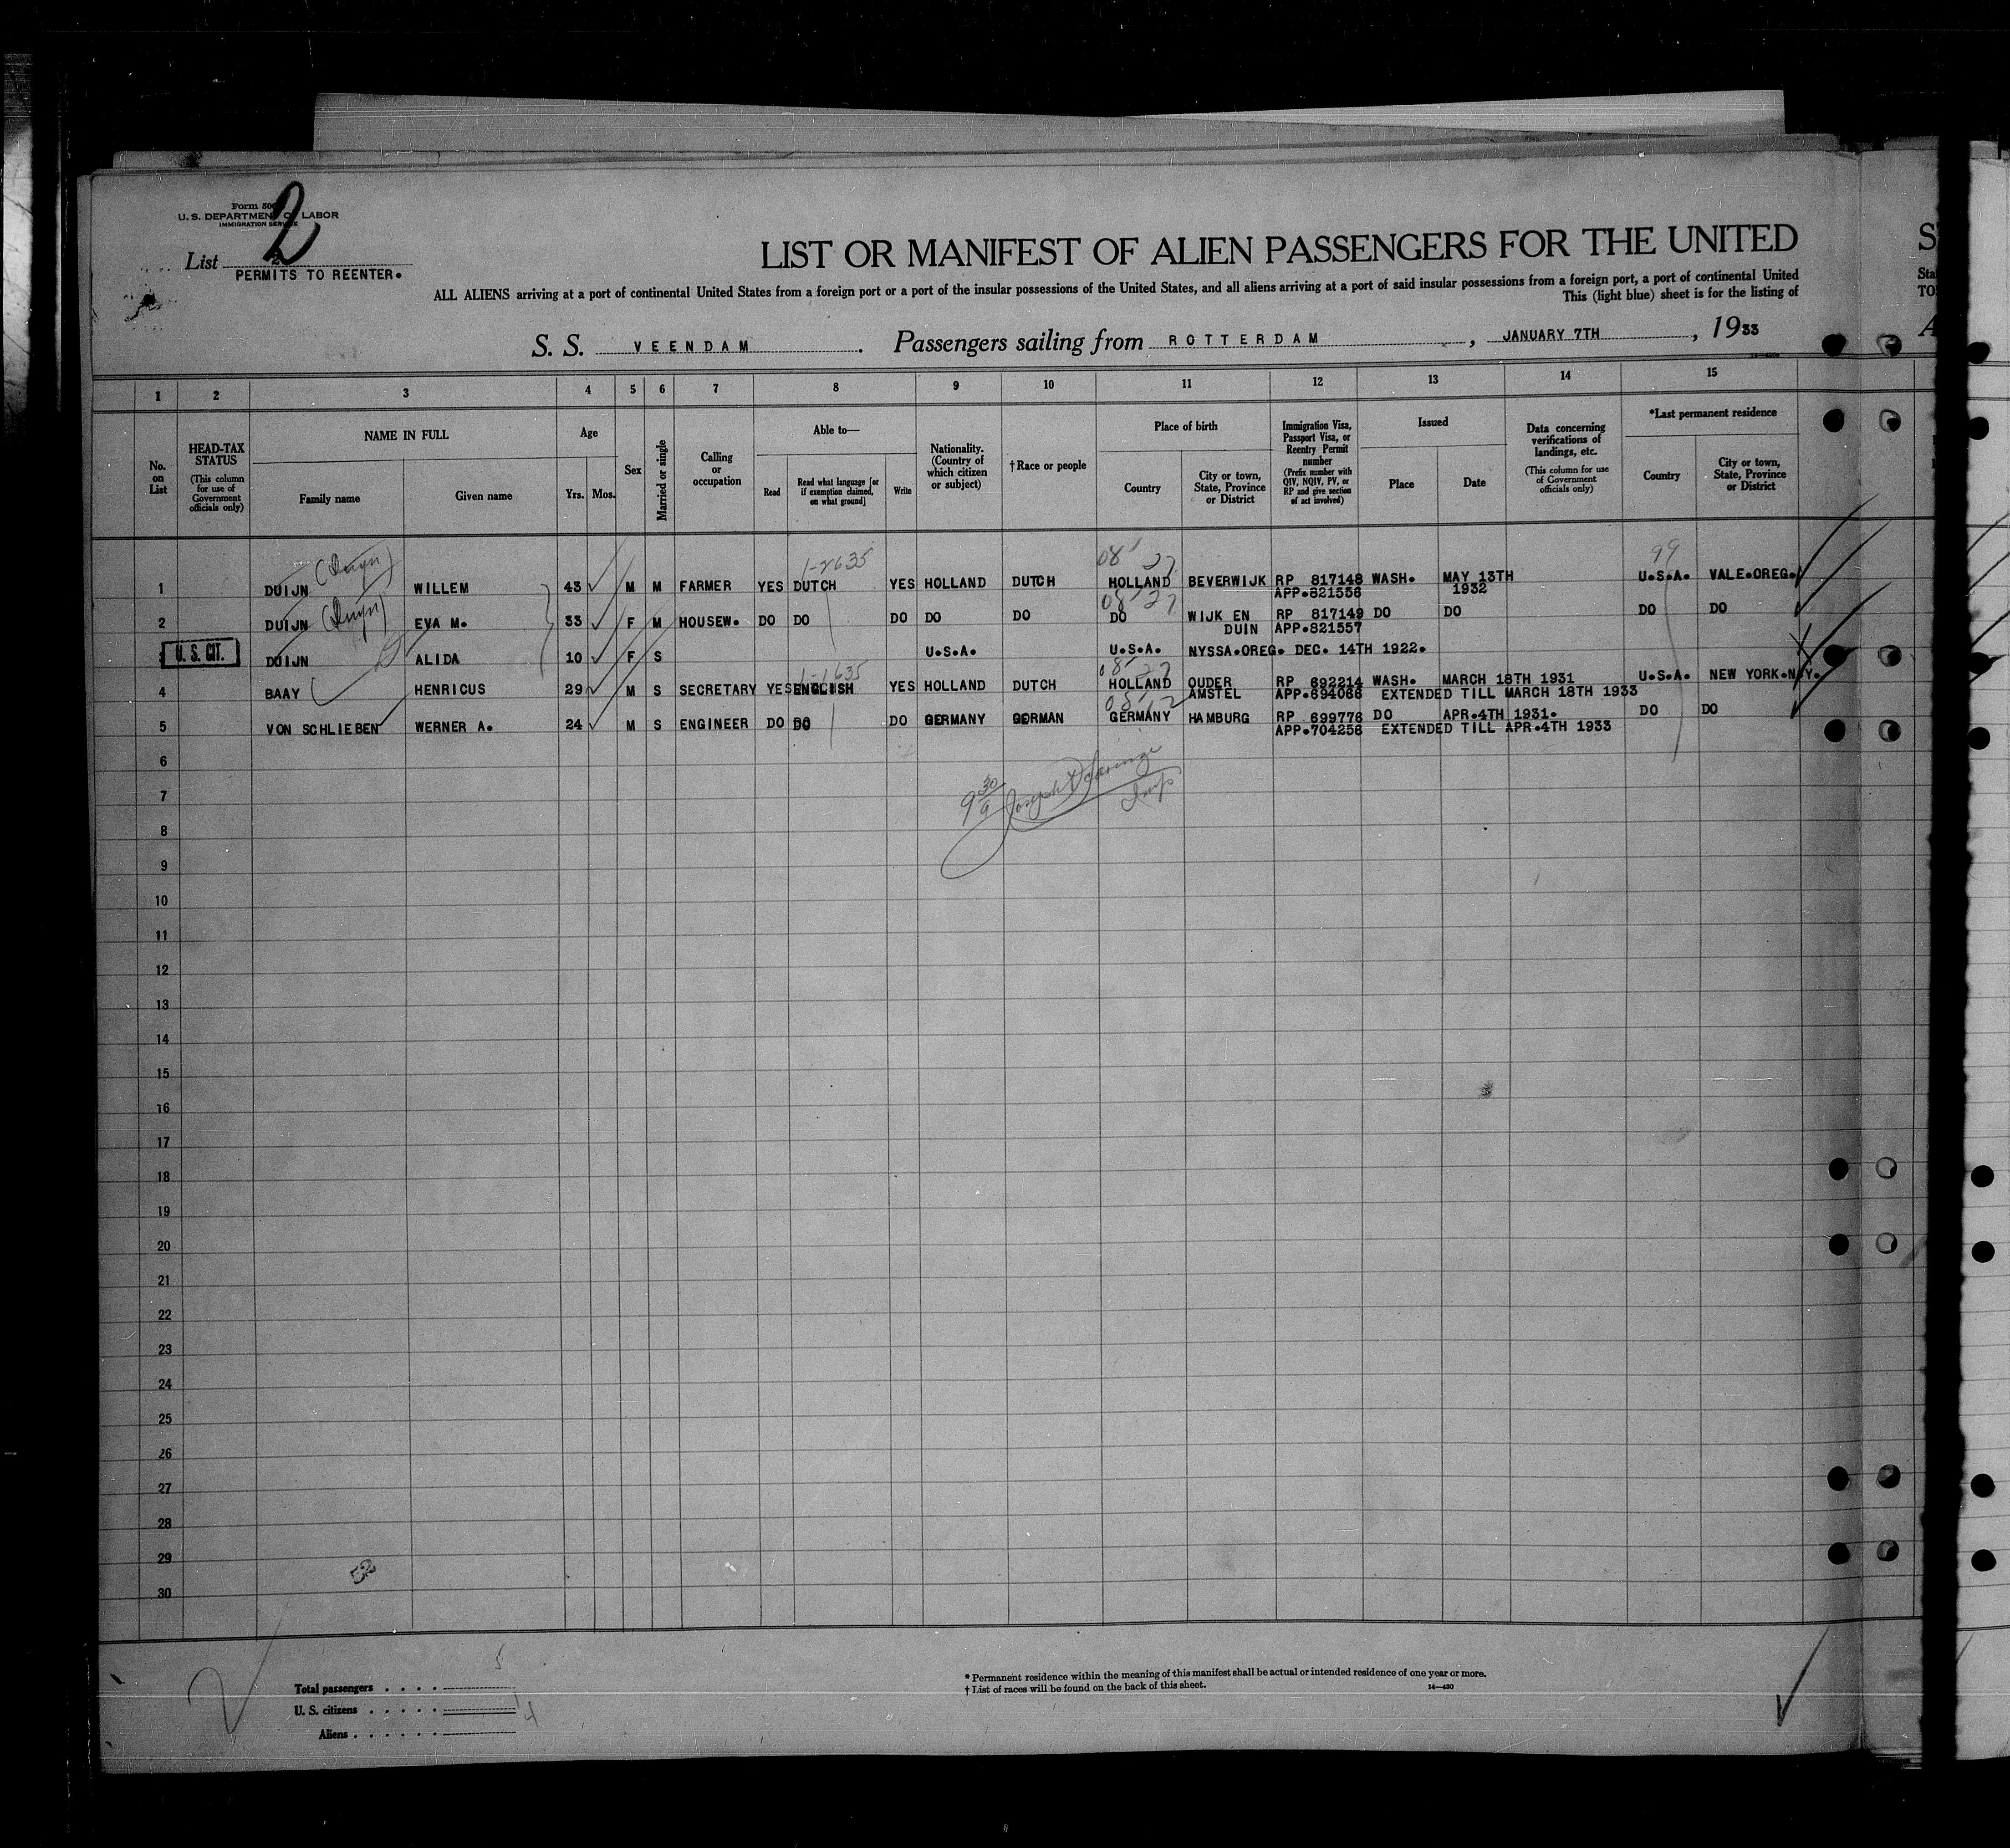 Form 500
U. S. DEPARTMENT OF LABOR
IMMIGRATION SERVICE
2
List 2
PERMITS TO REENTER.
LIST OR MANIFEST OF ALIEN PASSENGERS FOR THE UNITED
ALL ALIENS arriving at a port of continental United States from a foreign port or a port of the insular possessions of the United States, and all aliens arriving at a port of said insular possessions from a foreign port, a port of continental United
This (light blue) sheet is for the listing of
S. S. VEENDAM. Passengers sailing from ROTTERDAM, JANUARY 7TH, 1933
1 2 3 4 5 6 7 8 9 10 11 12 13 14 15
No. on List
HEAD-TAX STATUS
(This column for use of Government officials only)
NAME IN FULL
Family name
Given name
Age
Yrs. Mos.
Sex
Married or single
Calling or occupation
Able to—
Read
Read what language [or if exemption claimed, on what ground]
Write
Nationality. (Country of which citizen or subject)
†Race or people
Place of birth
Country
City or town, State, Province or District
Immigration Visa, Passport Visa, or Reentry Permit number
(Prefix number with QIV, NQIV, PV, or RP and give section of act involved)
Issued
Place
Date
Data concerning verifications of landings, etc.
(This column for use of Government officials only)
*Last permanent residence
Country
City or town, State, Province or District
1-2635 08 27 99
1 DUIJN (Duyn) WILLEM 43 M M FARMER YES DUTCH YES HOLLAND DUTCH HOLLAND BEVERWIJK RP 817148 WASH. MAY 13TH U.S.A. VALE.OREG.
APP.821556 1932
08 27
2 DUIJN (Duyn) EVA M. 33 F M HOUSEW. DO DO DO DO DO DO WIJK EN RP 817149 DO DO DO DO
DUIN APP.821557
U. S. CIT. DUIJN ALIDA 10 F S U.S.A. U.S.A. NYSSA.OREG. DEC. 14TH 1922.
1-1635 08 27
4 BAAY HENRICUS 29 M S SECRETARY YES ENGLISH YES HOLLAND DUTCH HOLLAND OUDER RP 692214 WASH. MARCH 18TH 1931 U.S.A. NEW YORK.N.Y.
AMSTEL APP.694066 EXTENDED TILL MARCH 18TH 1933
5 VON SCHLIEBEN WERNER A. 24 M S ENGINEER DO DO DO GERMANY GERMAN GERMANY HAMBURG RP 699776 DO APR.4TH 1931. DO DO
APP.704256 EXTENDED TILL APR.4TH 1933
6
7
8
9
10
11
12
13
14
15
16
17
18
19
20
21
22
23
24
25
26
27
28
29
30
Total passengers . . . . 5
U. S. citizens . . . . . 1
Aliens . . . . . . 4
* Permanent residence within the meaning of this manifest shall be actual or intended residence of one year or more.
† List of races will be found on the back of this sheet.
14—430